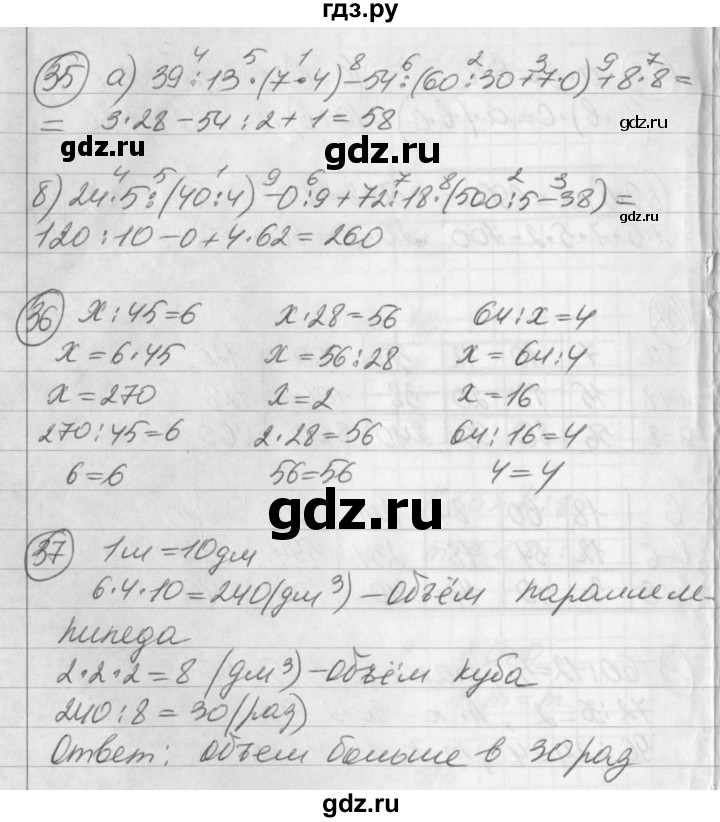 гдз.ру
35 а) 39:13·(7·4)-54:(60:30+7·0)+8·8=
= 3·28-54:2+1=58
gdz.ru
gdz.ru
б) 24·5:(40:4)-0:9+72:18·(500:5-38)=
gdz.ru
120:10-0+4·62=260
36 x:45=6 x·28=56 64:x=4
x=6·45 x=56:28 x=64:4
x=270 x=2 x=16
270:45=6 2·28=56 64:16=4
6=6 56=56 4=4
gdz.ru
37 1м=10дм
6·4·10=240(дм³)-объём параллеле-
пипеда
2·2·2=8 (дм³)-объём куба
240:8=30(рад)
Ответ: объем больше в 30 рад
gdz.ru
gdz.ru
gdz.ru